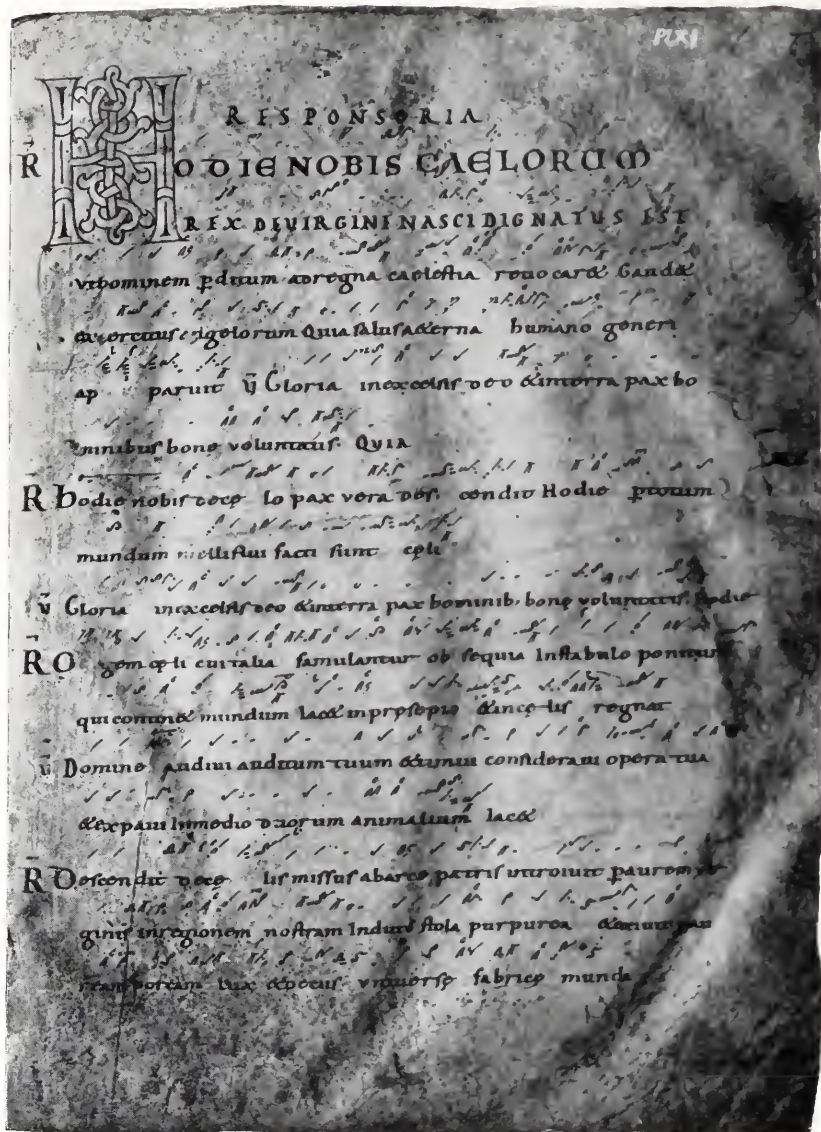 PLXI
RESPONSORIA
R̄ HODIE NOBIS CAELORUM
REX DEVIRGINE NASCI DIGNATUS EST
vthominem pditum adregna caelestia reuocaret Gaudet
exercitus angelorum Quia salus aeterna humano generi
ap paruit v̄ Gloria inexcelsis deo &interra pax ho
minibus bonę voluntatis QVIA
R̄ hodie nobis decę lo pax vera des cendit Hodie ptotum
mundum melliflui facti sunt cęli
v̄ Gloria inexcelsis deo &interra pax hominib; bonę voluntatis hodie
R̄ O gem cęli cui talia famulantur ob sequia Instabulo ponitur
qui contin& mundum Iac& inpręsepio &incę lis regnat
v̄ Domine audiui auditum tuum &timui consideraui opera tua
&expaui Inmedio duorum animalium Iac&
R̄ Descendit decę lis missus abarce patris introiuit paurem vir
ginis inregionem nostram Indutus stola purpurea &exiuit
portam lux &decus vniuersę fabricę munda